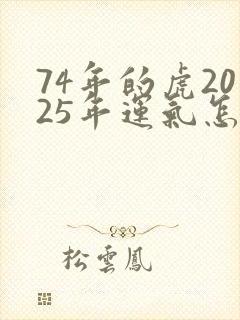 74年的虎20
25年運氣怎
松雲鳳